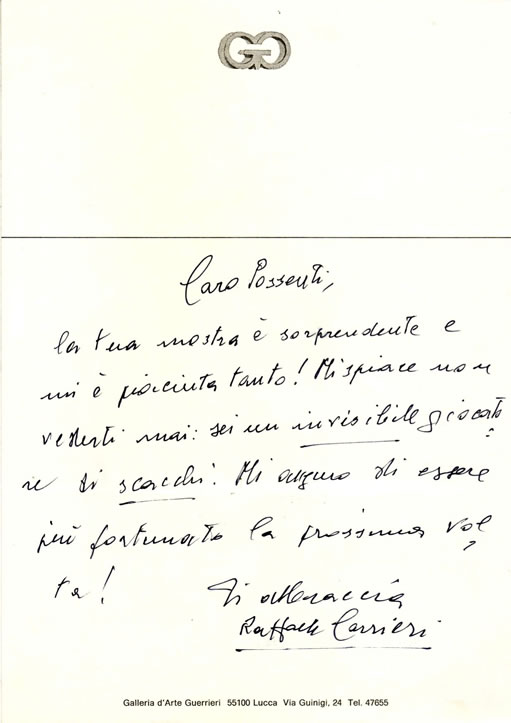 GG
Caro Possenti,
la tua mostra è sorprendente e
mi è piaciuta tanto! Mi spiace non
vederti mai: sei un invisibile giocato
re di scacchi. Mi auguro di essere
più fortunato la prossima vol
ta!
Ti abbraccia
Raffaele Carrieri
Galleria d'Arte Guerrieri 55100 Lucca Via Guinigi, 24 Tel. 47655